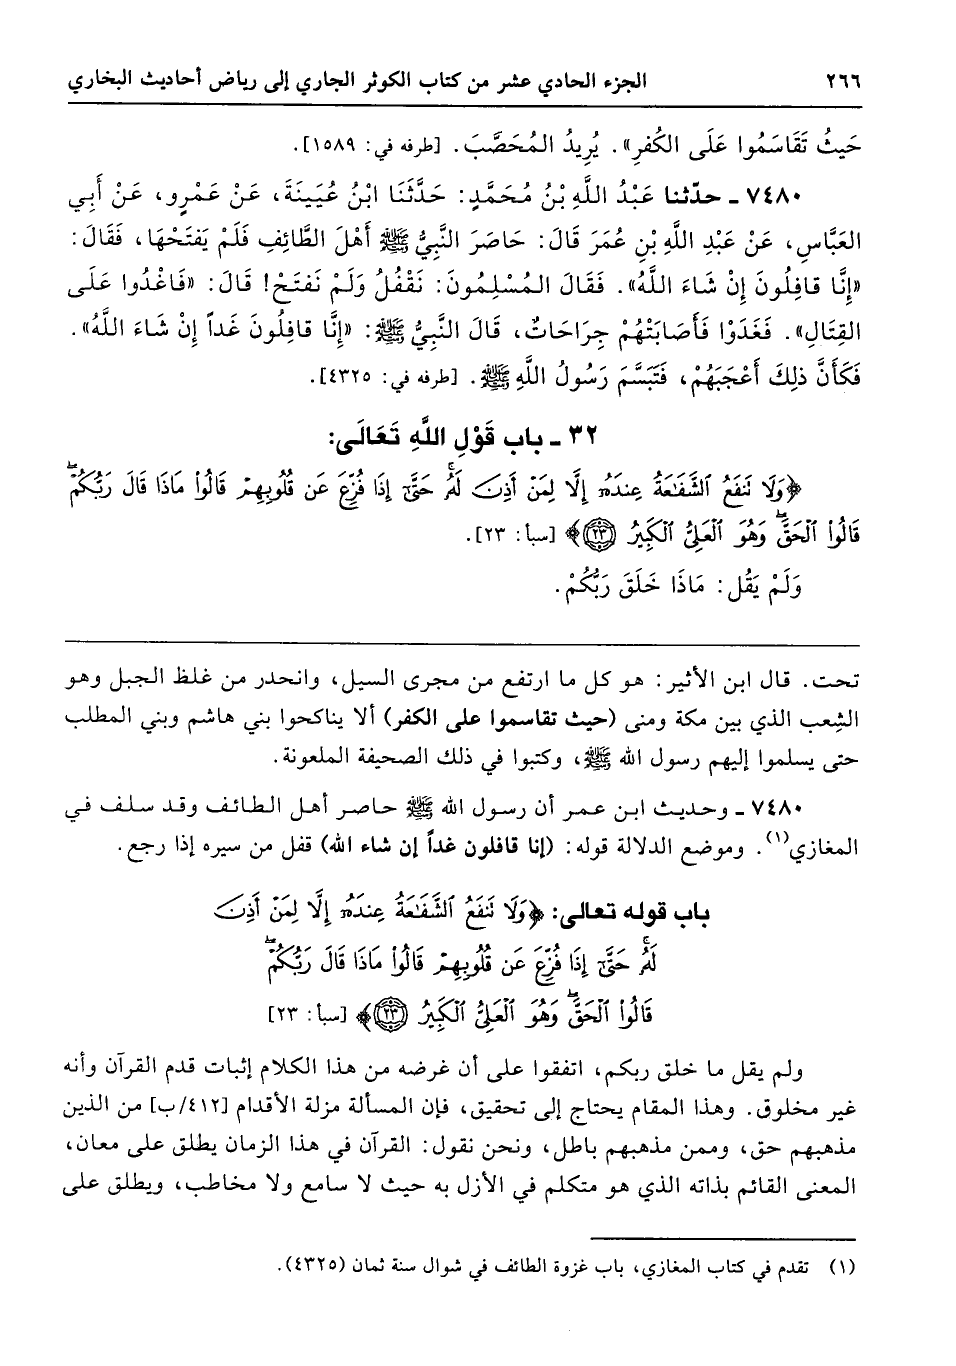 ٢٦٦ الجزء الحادي عشر من كتاب الكوثر الجاري إلى رياض أحاديث البخاري
حَيثُ تَقَاسَمُوا عَلَى الكُفرِ». يُرِيدُ المُحَصَّبَ. [طرفه في: ١٥٨٩].
٧٤٨٠ ـ حدّثنا عَبْدُ اللَّهِ بْنُ مُحَمَّدٍ: حَدَّثَنَا ابْنُ عُيَينَةَ، عَنْ عَمْرٍو، عَنْ أَبِي
العَبَّاسِ، عَنْ عَبْدِ اللَّهِ بْنِ عُمَرَ قَالَ: حَاصَرَ النَّبِيُّ ﷺ أَهْلَ الطَّائِفِ فَلَمْ يَفتَحْهَا، فَقَالَ:
«إِنَّا قافِلُونَ إِنْ شَاءَ اللَّهُ». فَقَالَ المُسْلِمُونَ: نَقْفُلُ وَلَمْ نَفتَحْ! قَالَ: «فَاغْدُوا عَلَى
القِتَالِ». فَغَدَوْا فَأَصَابَتْهُمْ جِرَاحَاتٌ، قَالَ النَّبِيُّ ﷺ: «إِنَّا قافِلُونَ غَداً إِنْ شَاءَ اللَّهُ».
فَكَأَنَّ ذلِكَ أَعْجَبَهُمْ، فَتَبَسَّمَ رَسُولُ اللَّهِ ﷺ. [طرفه في: ٤٣٢٥].
٣٢ ـ باب قَوْلِ اللَّهِ تَعَالَى:
﴿وَلَا نَنفَعُ ٱلشَّفَٰعَةُ عِندَهُۥٓ إِلَّا لِمَنْ أَذِنَ لَهُۥۚ حَتَّىٰٓ إِذَا فُزِّعَ عَن قُلُوبِهِمْ قَالُوا۟ مَاذَا قَالَ رَبُّكُمْۖ
قَالُوا۟ ٱلْحَقَّۖ وَهُوَ ٱلْعَلِىُّ ٱلْكَبِيرُ ٢٣﴾ [سبأ: ٢٣].
وَلَمْ يَقُل: مَاذَا خَلَقَ رَبُّكُمْ.
تحت. قال ابن الأثير: هو كل ما ارتفع من مجرى السيل، وانحدر من غلظ الجبل وهو
الشِعب الذي بين مكة ومنى (حيث تقاسموا على الكفر) ألا يناكحوا بني هاشم وبني المطلب
حتى يسلموا إليهم رسول الله ﷺ، وكتبوا في ذلك الصحيفة الملعونة.
٧٤٨٠ ـ وحديث ابن عمر أن رسول الله ﷺ حاصر أهل الطائف وقد سلف في
المغازي(١). وموضع الدلالة قوله: (إنا قافلون غداً إن شاء الله) قفل من سيره إذا رجع.
باب قوله تعالى: ﴿وَلَا نَنفَعُ ٱلشَّفَٰعَةُ عِندَهُۥٓ إِلَّا لِمَنْ أَذِنَ
لَهُۥۚ حَتَّىٰٓ إِذَا فُزِّعَ عَن قُلُوبِهِمْ قَالُوا۟ مَاذَا قَالَ رَبُّكُمْۖ
قَالُوا۟ ٱلْحَقَّۖ وَهُوَ ٱلْعَلِىُّ ٱلْكَبِيرُ ٢٣﴾ [سبأ: ٢٣]
ولم يقل ما خلق ربكم، اتفقوا على أن غرضه من هذا الكلام إثبات قدم القرآن وأنه
غير مخلوق. وهذا المقام يحتاج إلى تحقيق، فإن المسألة مزلة الأقدام [٤١٢/ب] من الذين
مذهبهم حق، وممن مذهبهم باطل، ونحن نقول: القرآن في هذا الزمان يطلق على معان،
المعنى القائم بذاته الذي هو متكلم في الأزل به حيث لا سامع ولا مخاطب، ويطلق على
(١) تقدم في كتاب المغازي، باب غزوة الطائف في شوال سنة ثمان (٤٣٢٥).